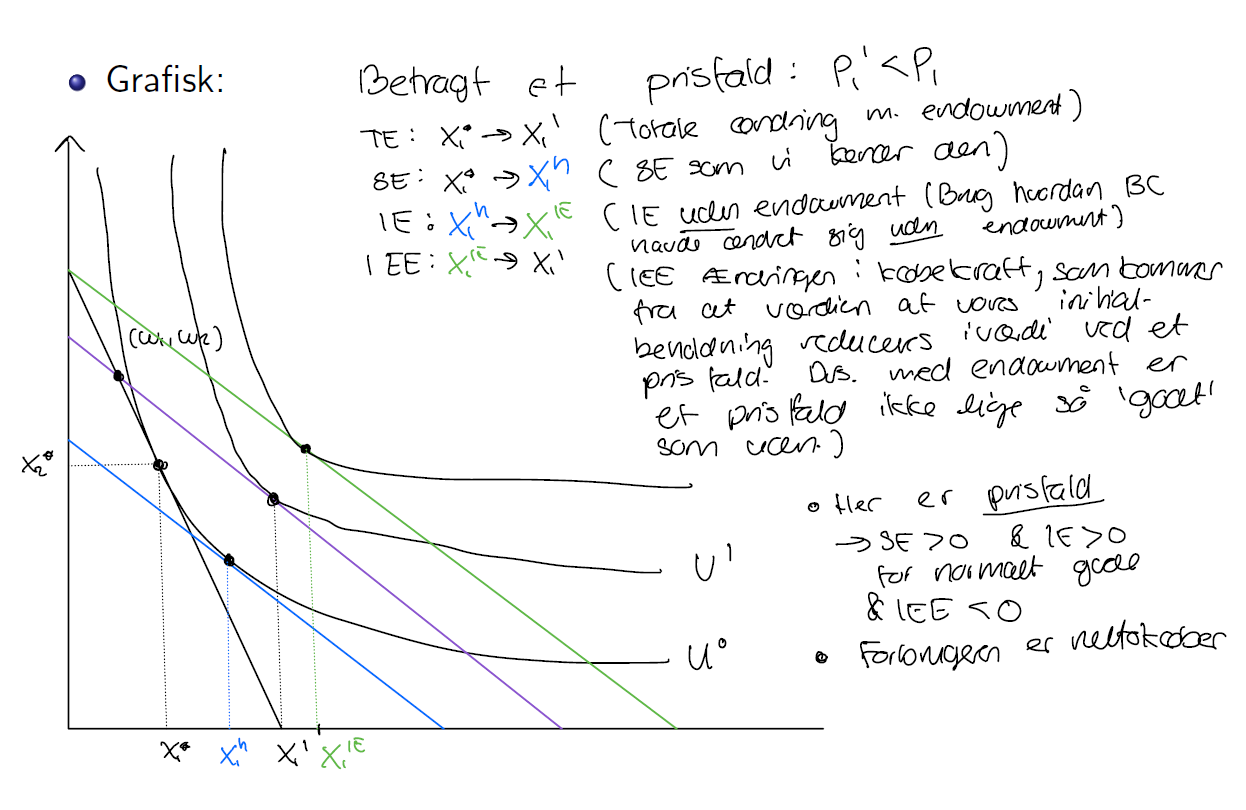 Grafisk:
Betragt et prisfald: P₁' < P₁
TE: X₁* → X₁' (Totale ændring m. endowment)
SE: X₁* → X₁ʰ (SE som vi kender den)
IE: X₁ʰ → X₁ᴵᴱ (IE uden endowment (Brug hvordan BC
havde ændret sig uden endowment)
IEE: X₁ᴵᴱ → X₁' (IEE Ændringen i købekraft, som kommer
fra at værdien af vores initial-
beholdning reduceres i værdi ved et
prisfald. Dvs. med endowment er
et prisfald ikke lige så 'godt'
som uden.)
(ω₁, ω₂)
X₂*
Her er prisfald
→ SE > 0 & IE > 0
for normalt gode
& IEE < 0
Forbrugeren er nettokøber
U¹
U⁰
X₁* X₁ʰ X₁' X₁ᴵᴱ